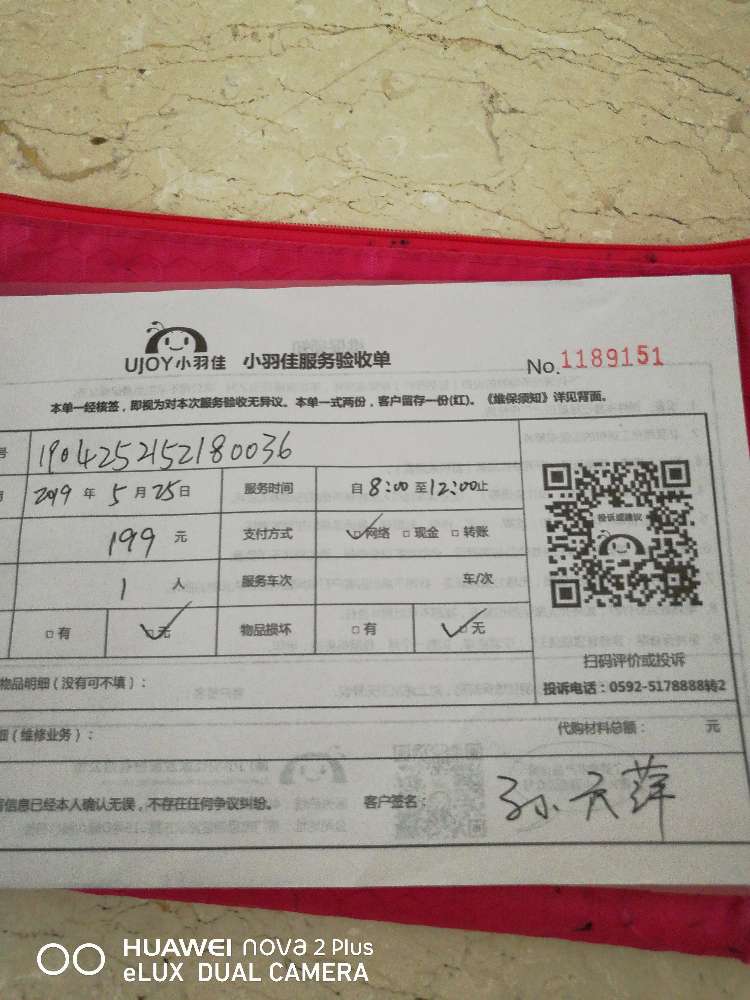 UJOY小羽佳 小羽佳服务验收单 No.1189151
本单一经核签，即视为对本次服务验收无异议。本单一式两份，客户留存一份(红)。《维保须知》详见背面。
号 1904252152180036
2019 年 5 月 25 日 服务时间 自 8:00 至 12:00 止
199 元 支付方式 ☑网络 □现金 □转账
1 人 服务车次 车/次
□有 ☑无 物品损坏 □有 ☑无
投诉或建议
扫码评价或投诉
投诉电话：0592-5178888转2
物品明细（没有可不填）：
细（维修业务）： 代购材料总额： 元
信息已经本人确认无误，不存在任何争议纠纷。 客户签名： 孙天萍
HUAWEI nova 2 Plus
eLUX DUAL CAMERA